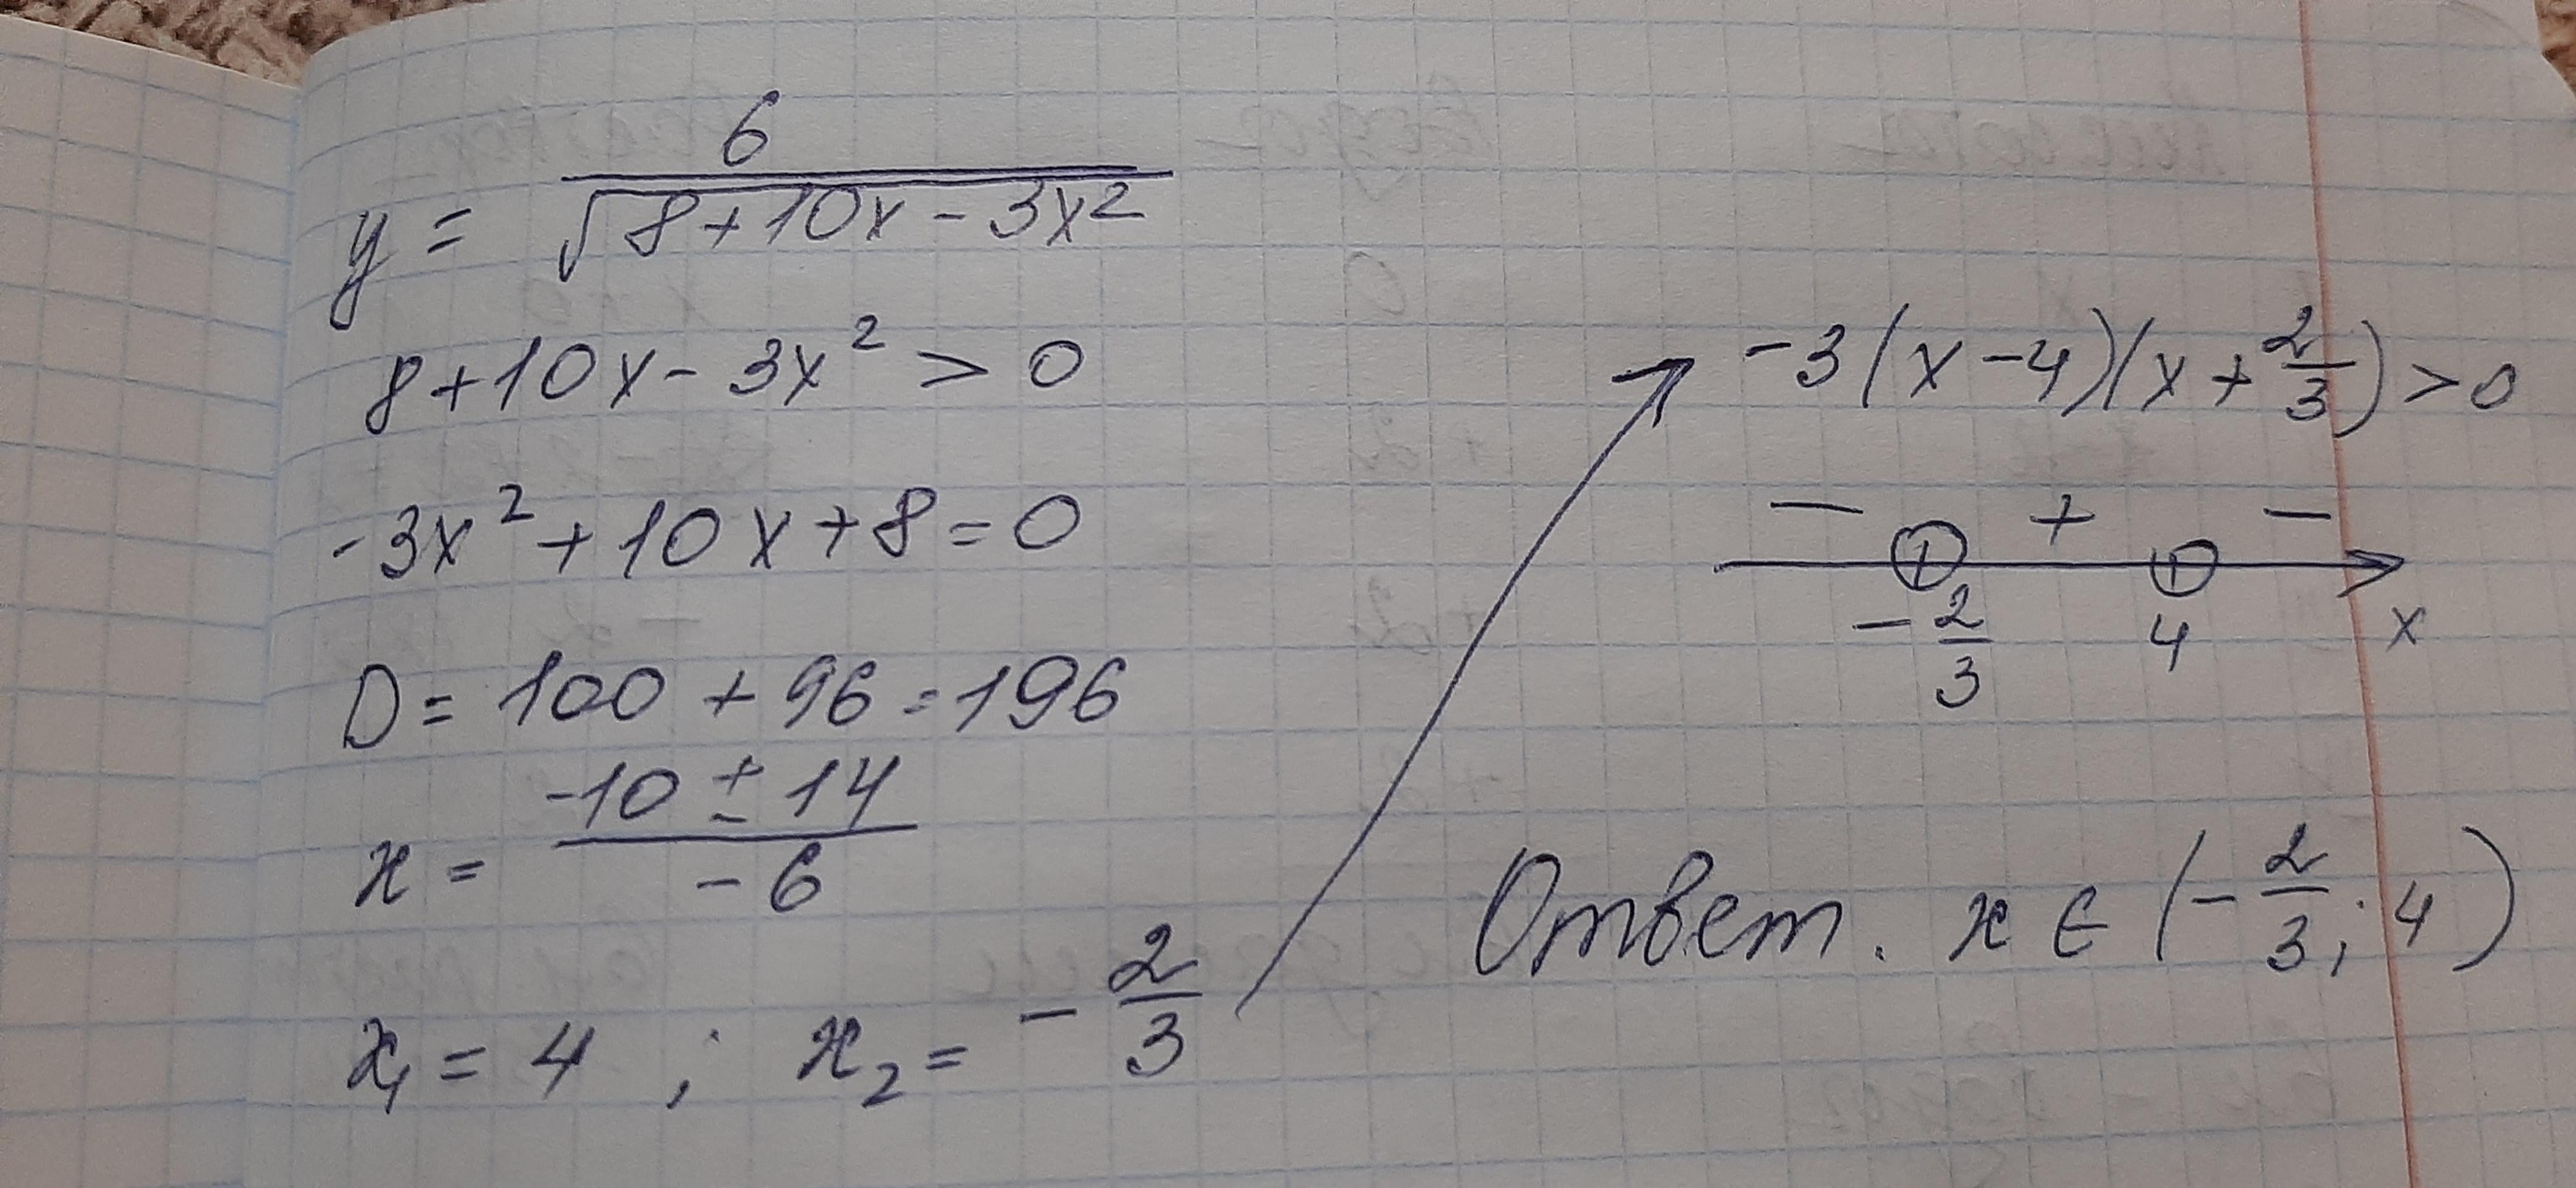 y = 6 / √(8+10x-3x²)
8+10x-3x² > 0
-3x²+10x+8=0
D = 100 + 96 = 196
x = (-10 ± 14) / -6
x₁ = 4 ; x₂ = -2/3
-3(x-4)(x+2/3)>0
- + -
-2/3 4 x
Ответ. x ∈ (-2/3; 4)